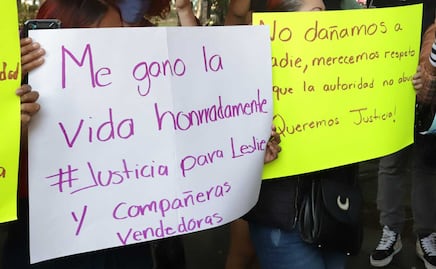 Me gano la
vida honrradamente
#Justicia para Leslie
y compañeras
vendedoras
No dañamos a
nadie, merecemos respeto
que la autoridad no abuse
¡Queremos Justicia!